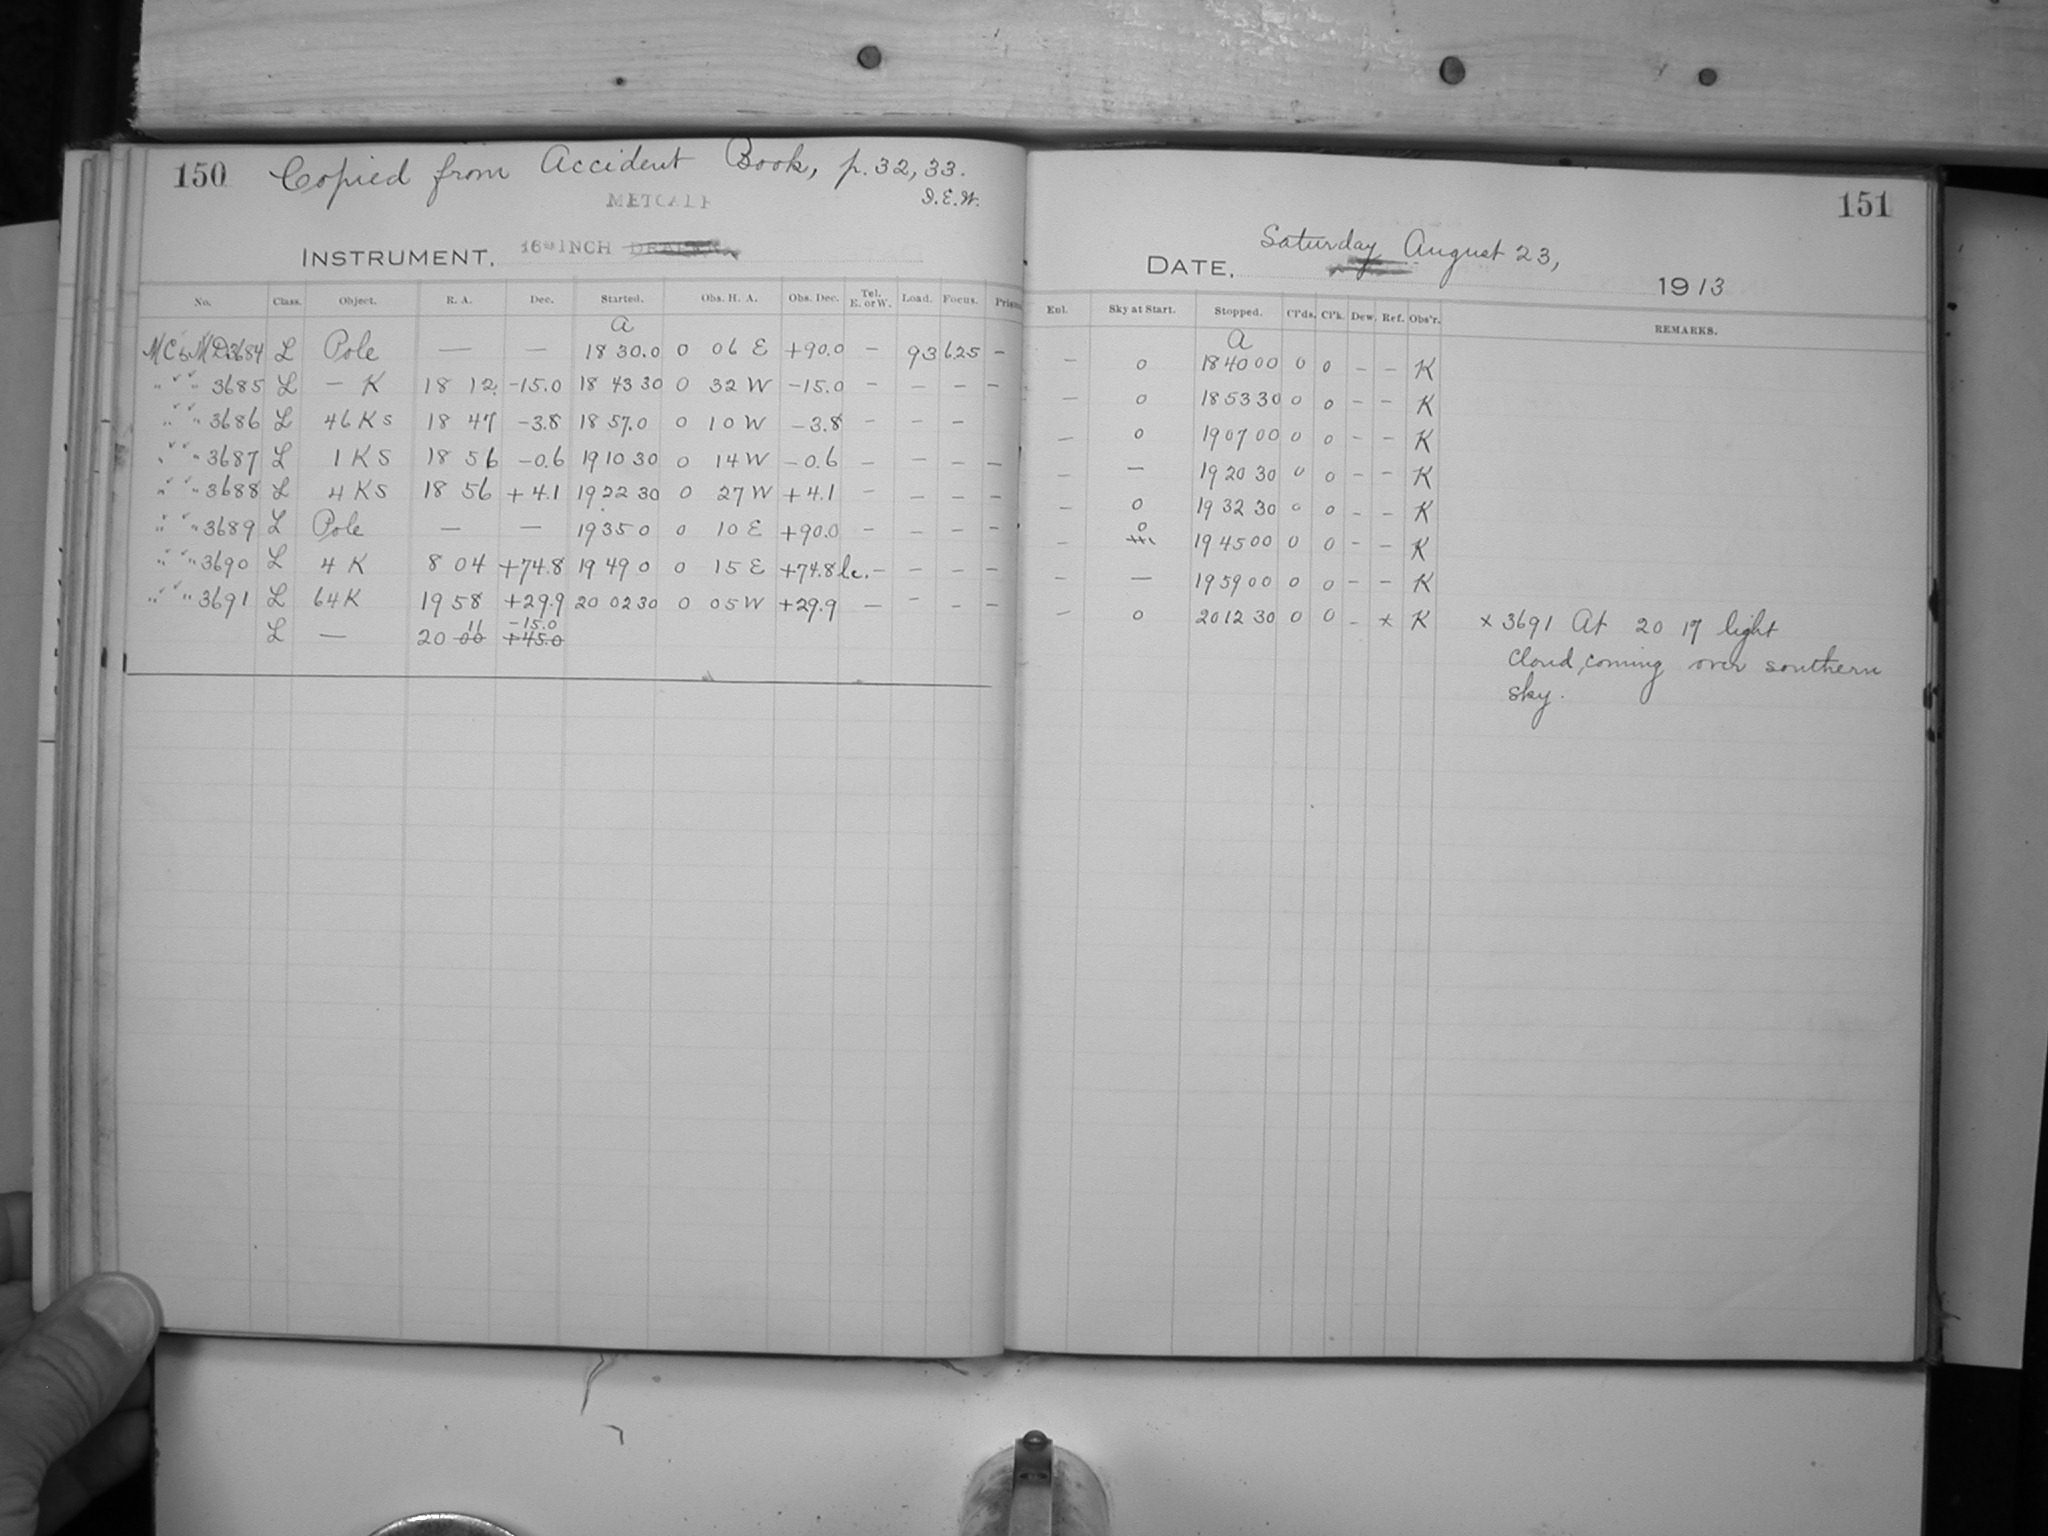 150 Copied from Accident Book, p. 32, 33.
I.E.W.
METCALF
INSTRUMENT. 16 INCH DRAPER
No. Class. Object. R. A. Dec. Started. Obs. H. A. Obs. Dec. Tel. E. or W. Load. Focus. Prism
A
MC & MD 3684 L Pole — — 18 30.0 0 06 E +90.0 – 93 625 –
" " " 3685 L — K 18 12. -15.0 18 43 30 0 32 W -15.0 – – – –
" " 3686 L 46 K s 18 47 -3.8 18 57.0 0 10 W -3.8 – – –
" " " 3687 L 1 K S 18 56 -0.6 19 10 30 0 14 W -0.6 – – – –
" " " 3688 L 4 K S 18 56 +4.1 19 22 30 0 27 W +4.1 – – – –
" " " 3689 L Pole — — 19 35 0 0 10 E +90.0 – – – –
" " " 3690 L 4 K 8 04 +74.8 19 49 0 0 15 E +74.8 l.c. – – – –
" " " 3691 L 64 K 19 58 +29.9 20 02 30 0 05 W +29.9 – – – –
11 -15.0
L — 20 00 +45.0
151
Saturday August 23,
DATE, 1913
Enl. Sky at Start. Stopped. Cl'ds. Cl'k. Dew. Ref. Obs'r. REMARKS.
A
– 0 18 40 00 0 0 – – K
– 0 18 53 30 0 0 – – K
– 0 19 07 00 0 0 – – K
– — 19 20 30 0 0 – – K
– 0 19 32 30 0 0 – – K
0
– 19 45 00 0 0 – – K
– — 19 59 00 0 0 – – K
– 0 20 12 30 0 0 – x K x 3691 At 20 17 light
cloud, coming over southern
sky.